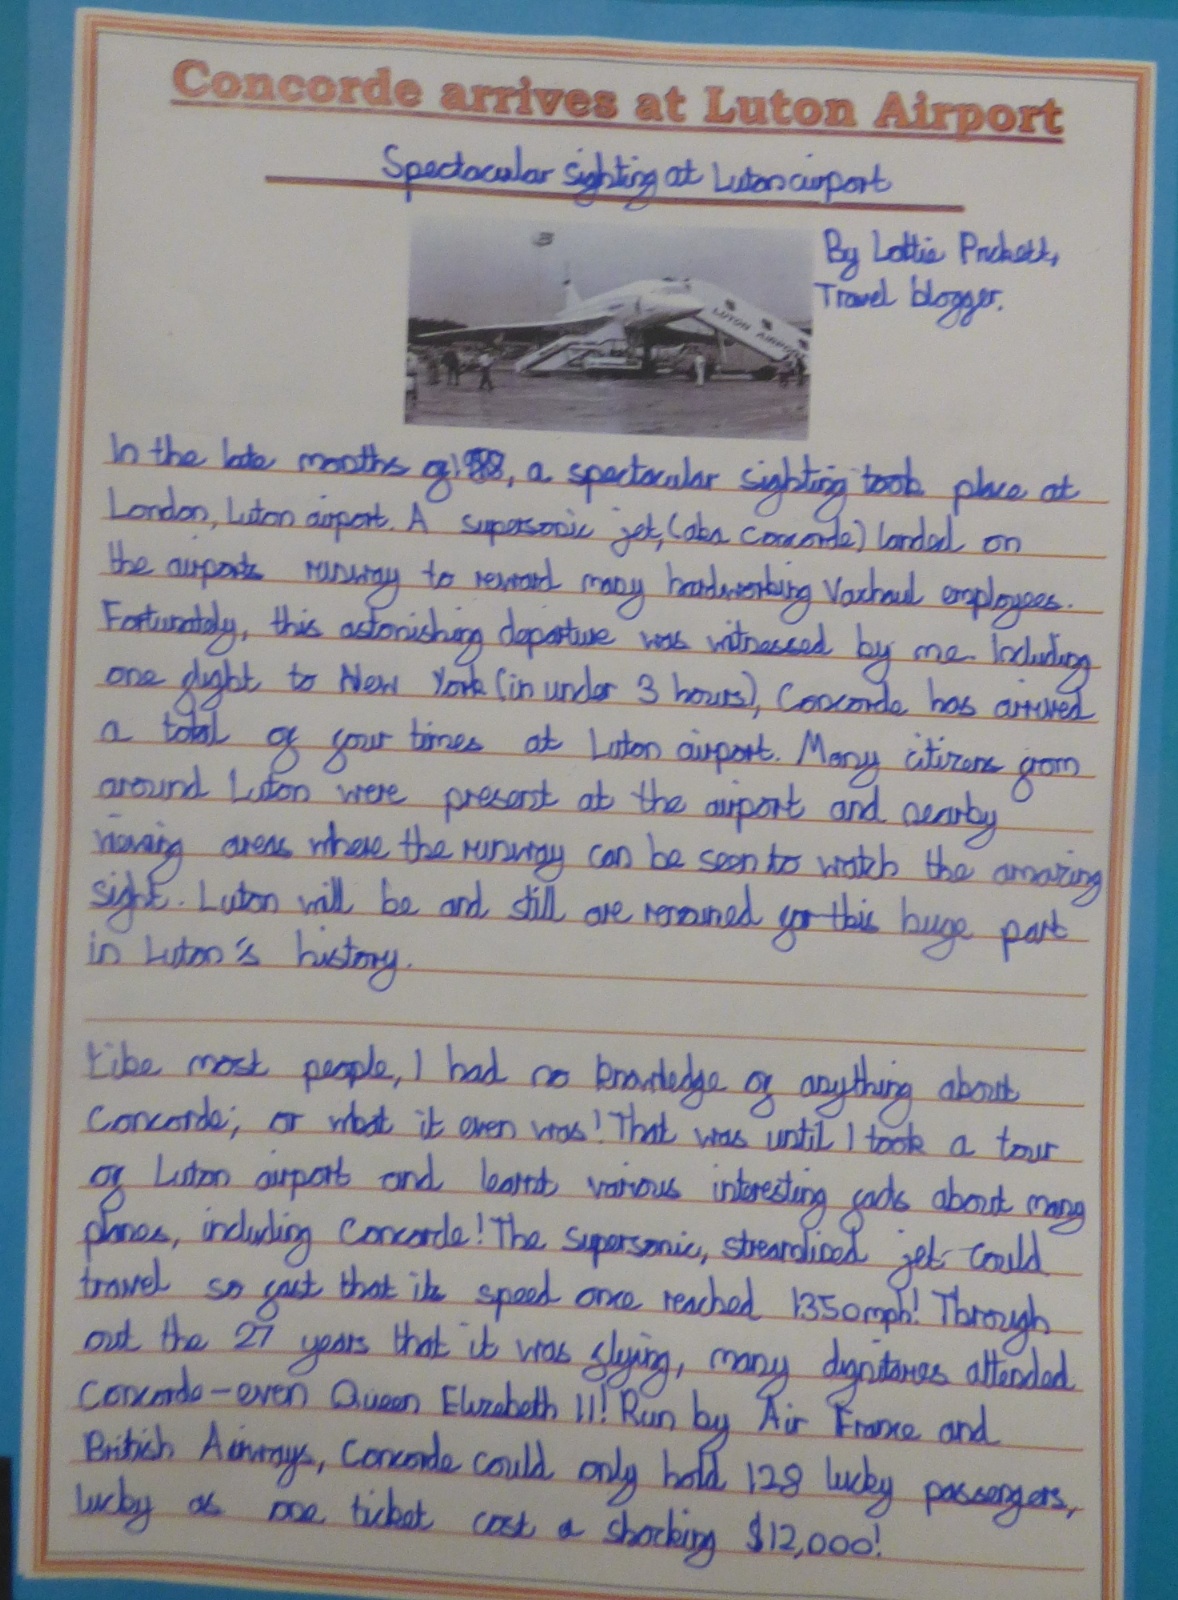 Concorde arrives at Luton Airport
Spectacular sighting at Luton airport
By Lottie Prickett,
Travel blogger.
LUTON AIRPORT
In the late months of 1988, a spectacular sighting took place at
London, Luton airport. A supersonic jet, (aka Concorde) landed on
the airports runway to reward many hardworking Vaxhaul employees.
Fortunately, this astonishing departure was witnessed by me. Including
one flight to New York (in under 3 hours), Concorde has arrived
a total of four times at Luton airport. Many citizens from
around Luton were present at the airport and nearby
viewing areas where the runway can be seen to watch the amazing
sight. Luton will be and still are renowned for this huge part
in Luton's history.
Like most people, I had no knowledge of anything about
Concorde; or what it even was! That was until I took a tour
of Luton airport and learnt various interesting facts about many
planes, including Concorde! The supersonic, streamlined jet could
travel so fast that its speed once reached 1350mph! Through
out the 27 years that it was flying, many dignitaries attended
Concorde-even Queen Elizabeth II! Run by Air France and
British Airways, Concorde could only hold 128 lucky passengers,
lucky as one ticket cost a shocking $12,000!